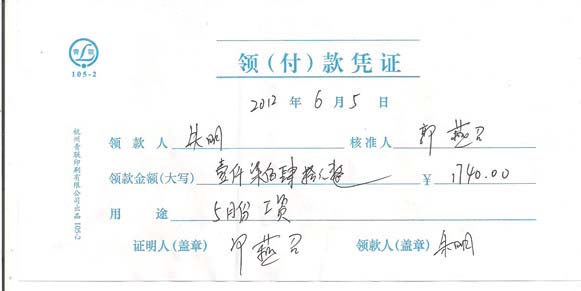 青联
105-2
领(付)款凭证
2012 年 6 月 5 日
领款人 朱明 核准人 燕召
领款金额(大写) 壹仟柒佰肆拾元整 ¥ 1740.00
用途 5月份工资
证明人(盖章) 燕召 领款人(盖章) 朱明
杭州青联印刷有限公司出品 105-2